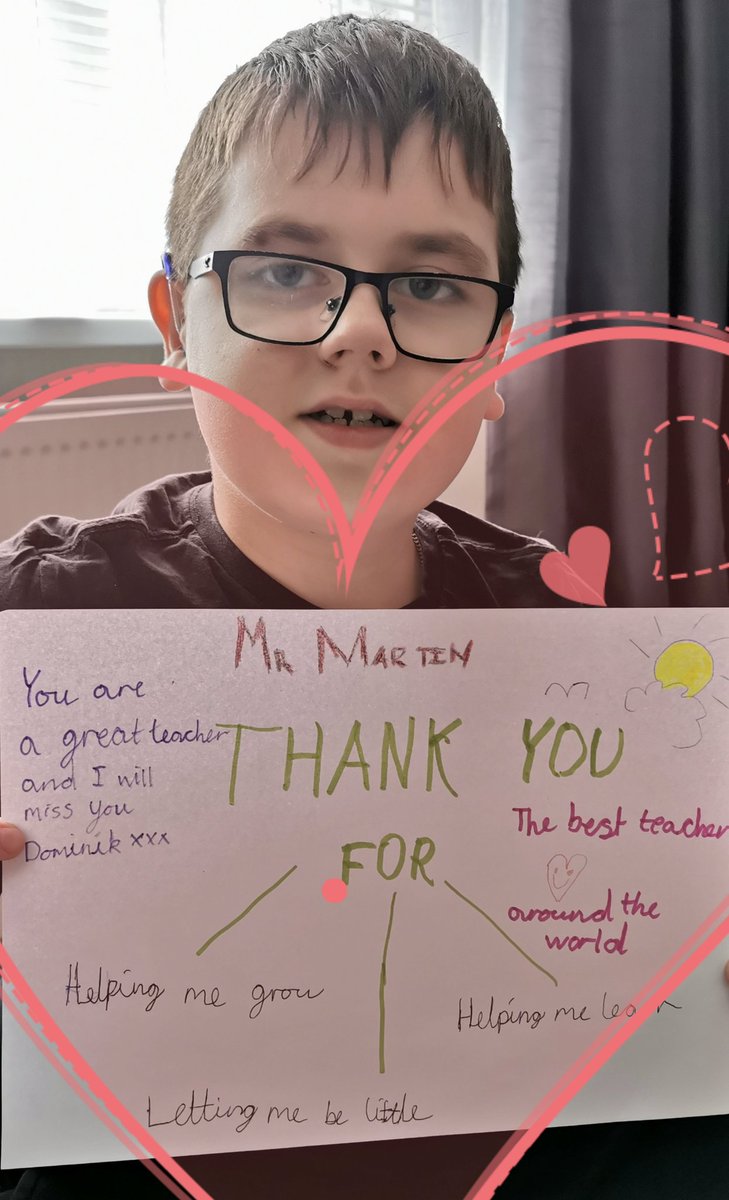 MR MARTIN
You are
a great teacher
and I will
miss you
Dominik xxx
THANK YOU
FOR
The best teacher
around the
world
Helping me grow
Helping me learn
Letting me be little